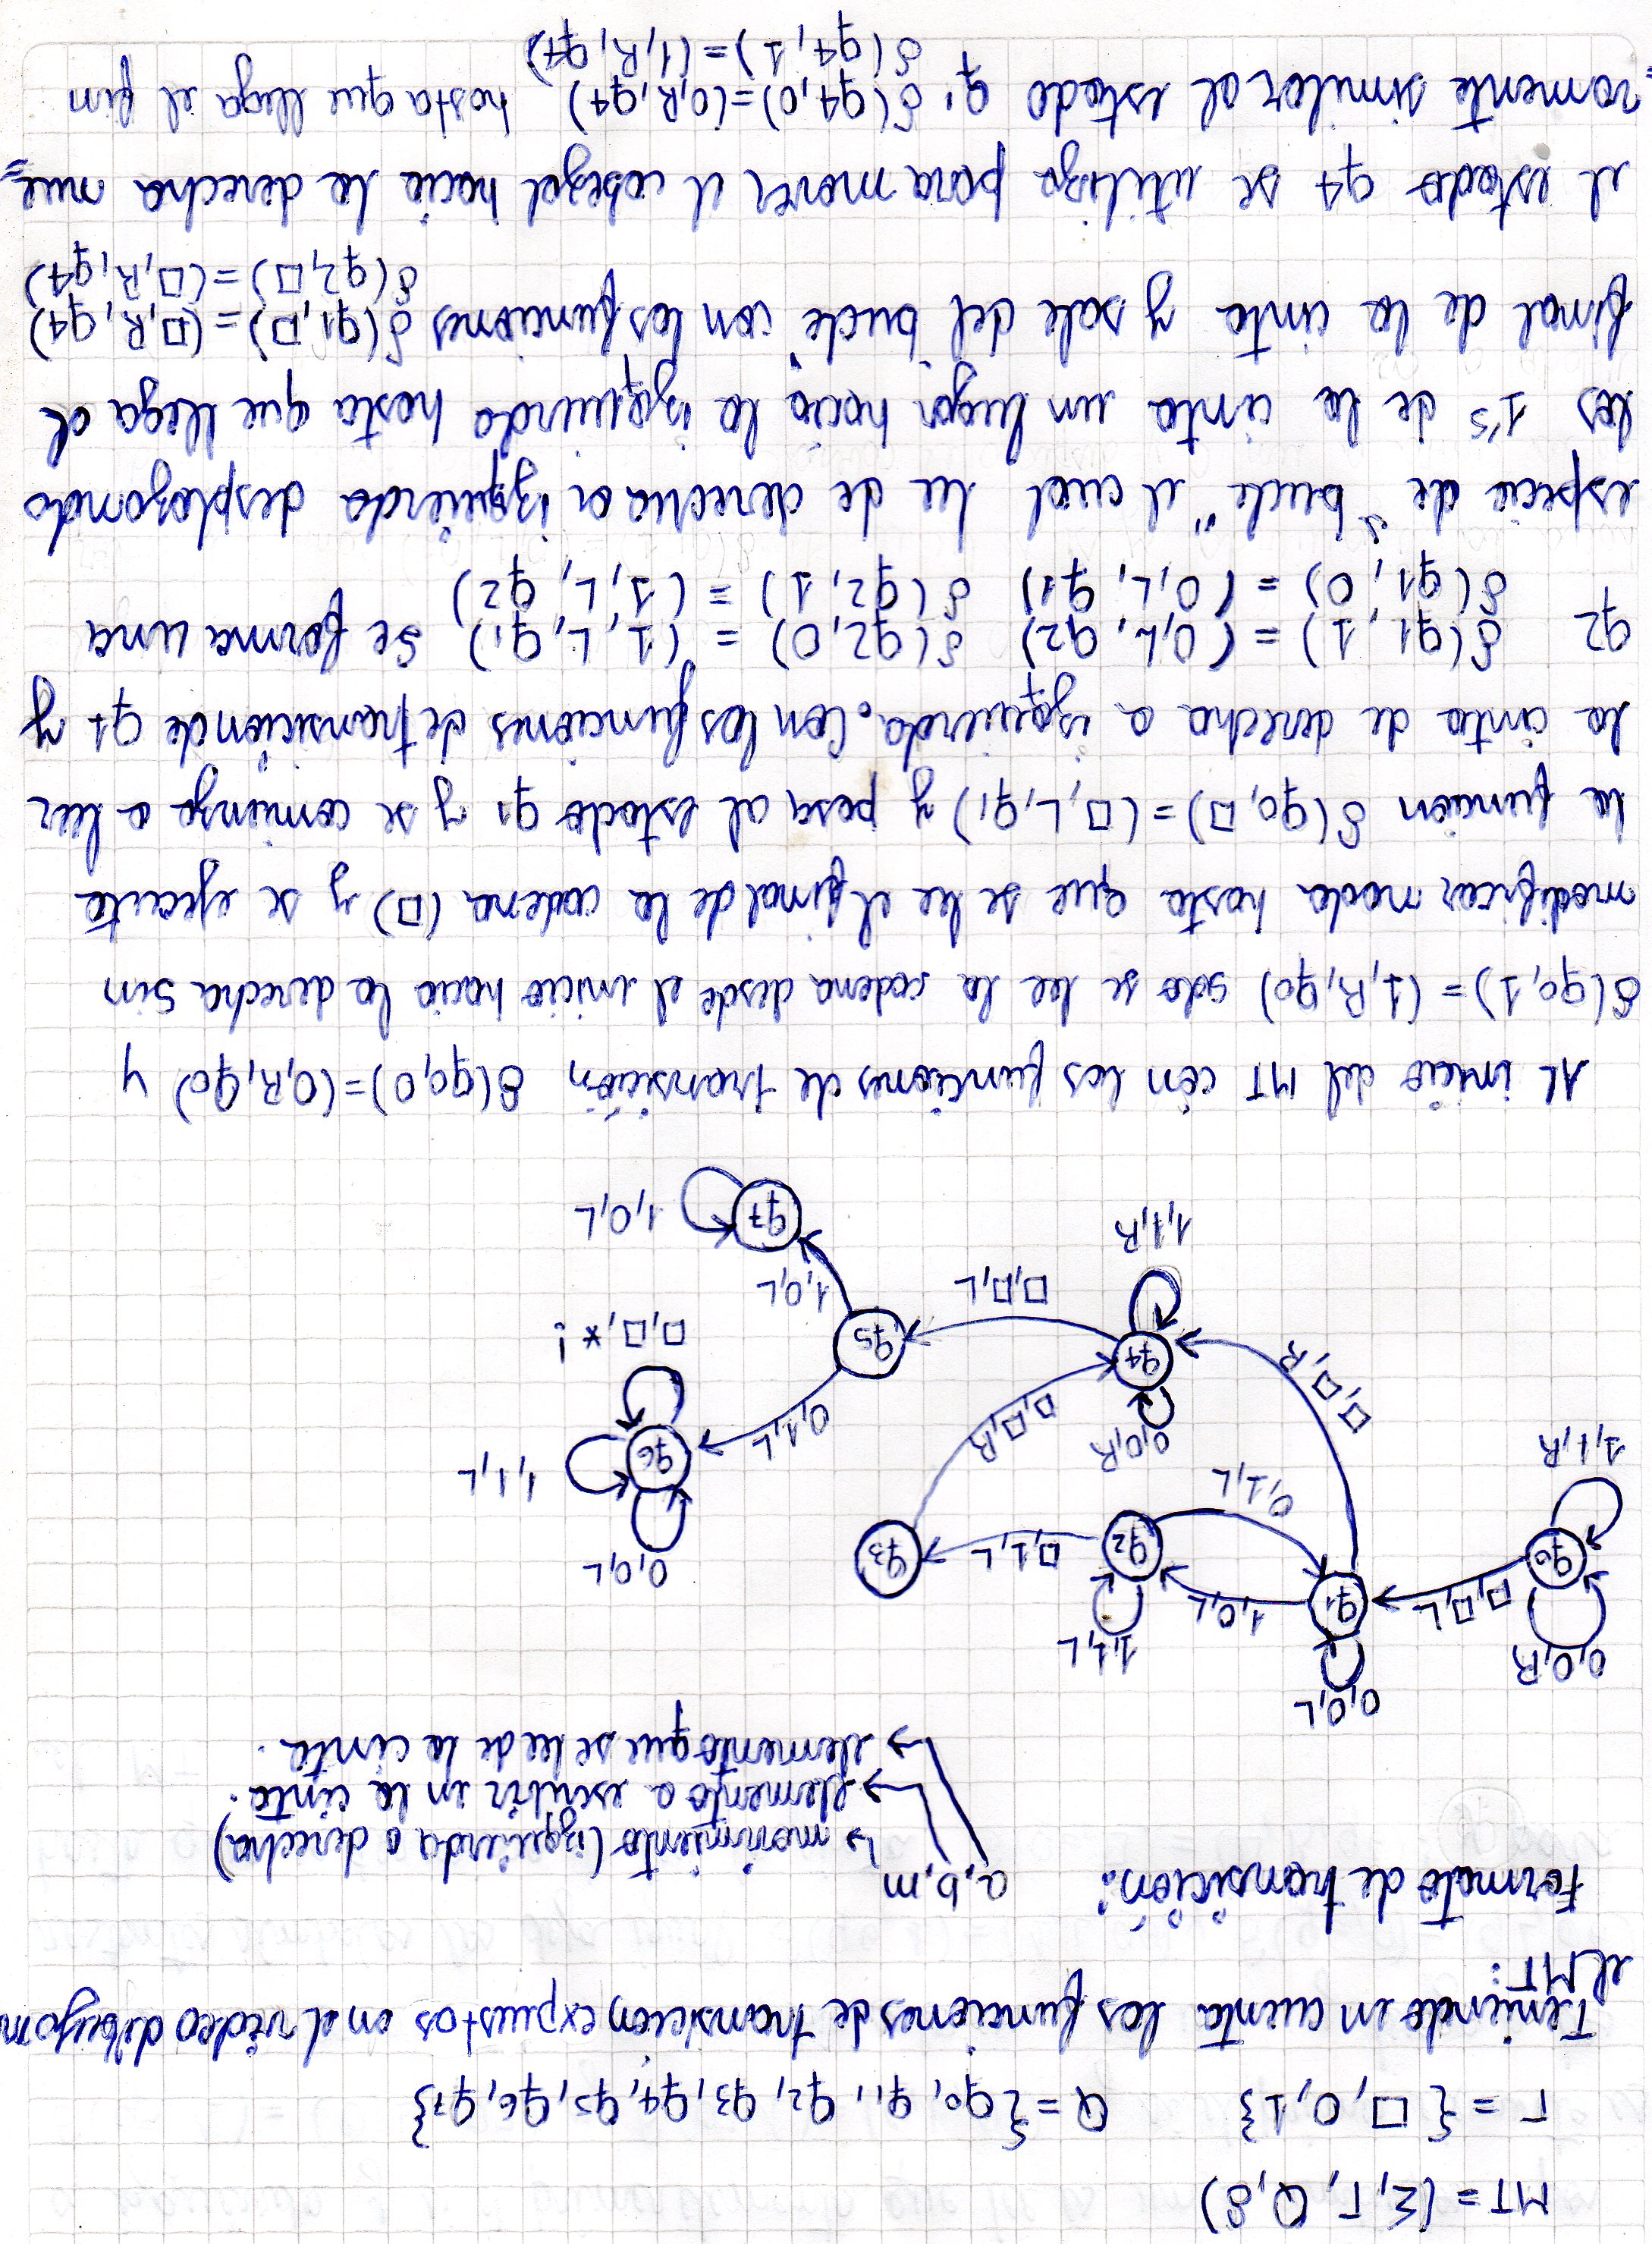 MT = (Σ, Γ, Q, δ)
Γ = {□, 0, 1}   Q = {q0, q1, q2, q3, q4, q5, q6, q7}
Teniendo en cuenta las funciones de transición expuestos en el video dibujam
el MT:
Formato de transición:   a, b, m
↳ movimiento (izquierda o derecha)
→ elemento a escribir en la cinta.
→ elemento que se lee de la cinta.
0,0,R
q0
1,1,R
□,□,L
0,0,L
q1
1,0,L
1,1,L
q2
0,1,L
□,1,L
q3
□,□,R
□,□,R
0,0,R
q4
1,1,R
□,□,L
q5
0,1,L
1,0,L
0,0,L
q6
1,1,L
□,□,*;
q7
1,0,L
Al inicio del MT con las funciones de transición δ(q0,0)=(0,R,q0) y
δ(q0,1)=(1,R,q0) solo se lee la cadena desde el inicio hacia la derecha sin
modificar nada hasta que se lee el final de la cadena (□) y se ejecuta
la función δ(q0,□)=(□,L,q1) y pasa al estado q1 y se comienza a leer
la cinta de derecha a izquierda. Con las funciones de transición de q1 y
q2 δ(q1,1) = (0,L,q2) δ(q2,0) = (1,L,q1) se forma una
δ(q1,0) = (0,L,q1) δ(q2,1) = (1,L,q2)
especie de "bucle" el cual lee de derecha a izquierda desplazando
los 1's de la cinta un lugar hacia la izquierda hasta que llega al
final de la cinta y sale del bucle con las funciones δ(q1,□)=(□,R,q4)
δ(q2,□)=(□,R,q4)
el estado q4 se utiliza para mover el cabezal hacia la derecha nue=
=vamente similar al estado q0 δ(q4,0)=(0,R,q4) hasta que llega el fin
δ(q4,1)=(1,R,q4)